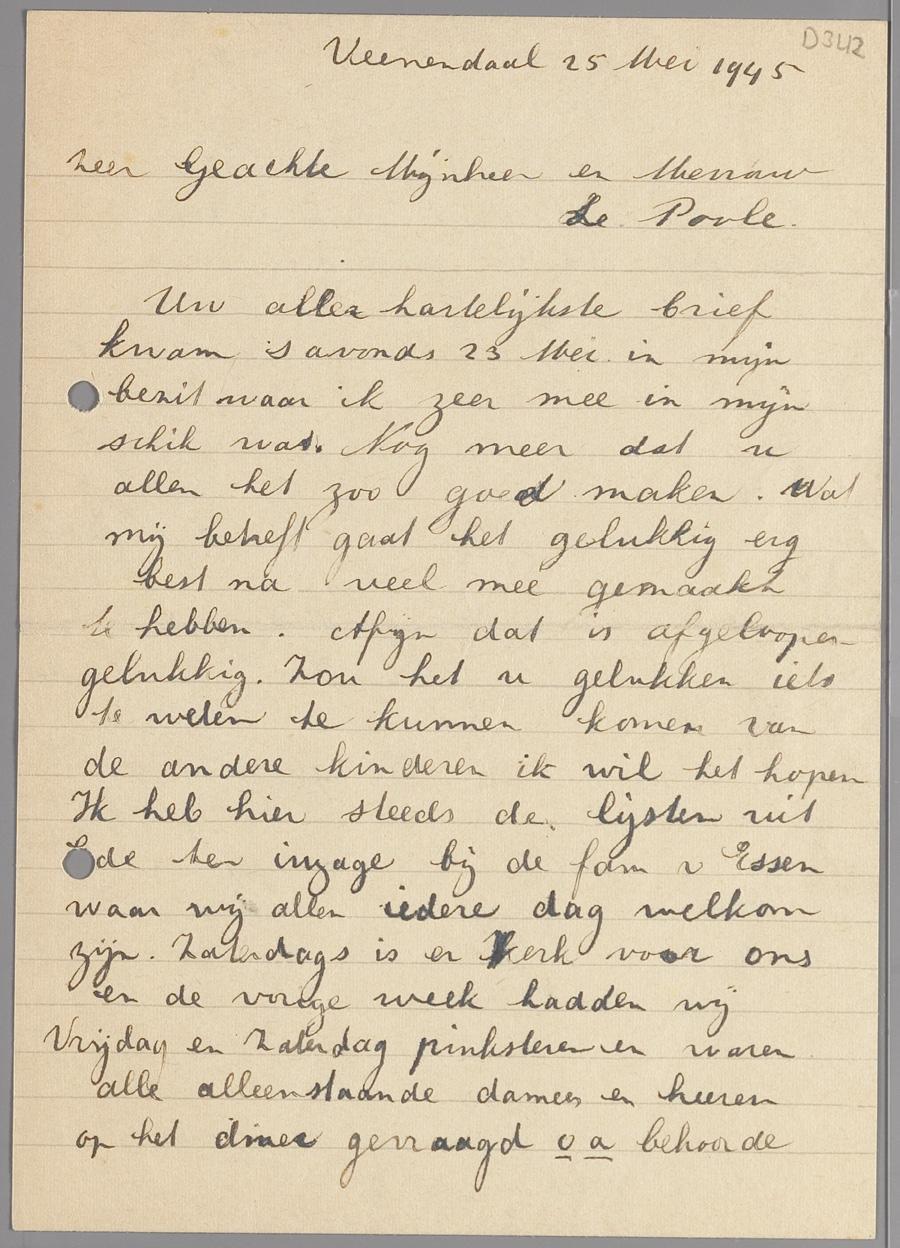 D342
Veenendaal 25 Mei 1945
Zeer Geachte Mijnheer en Mevrouw
Le Poole.
Uw aller hartelijkste brief
kwam s avonds 23 Mei in mijn
bezit waar ik zeer mee in mijn
schik was. Nog meer dat u
allen het zoo goed maken. Wat
mij betreft gaat het gelukkig erg
best na veel mee gemaakt
te hebben. Afijn dat is afgeloopen
gelukkig. Zou het u gelukken iets
te weten te kunnen komen van
de andere kinderen ik wil het hopen
Ik heb hier steeds de lijsten uit
Ede ter inzage bij de fam v Essen
waar wij allen iedere dag welkom
zijn. Zaterdags is er Kerk voor ons
en de vorige week hadden wij
Vrijdag en Zaterdag pinksteren en waren
alle alleenstaande dames en heeren
op het diner gevraagd o a behoorde